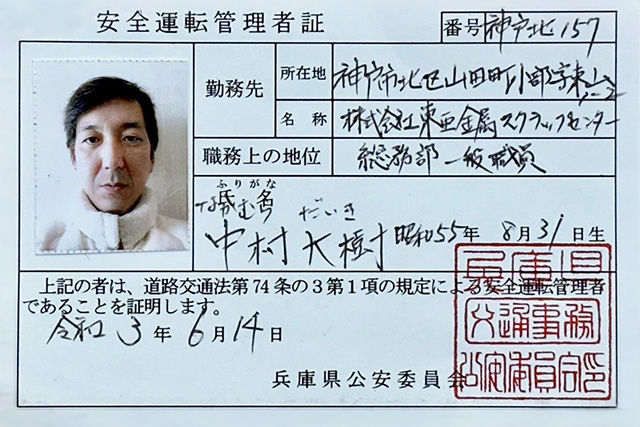 安全運転管理者証
番号 神戸北157
勤務先
所在地 神戸市北区山田町小部字東山
名称 株式会社東亜金属スクラップセンター
職務上の地位 総務部 一般職員
ふりがな
氏名
なかむら だいき
中村 大樹 昭和55年 8月31日生
上記の者は、道路交通法第74条の3第1項の規定による安全運転管理者
であることを証明します。
令和3年6月14日
兵庫県公安委員会
兵庫県
交通事務
公安委員会印